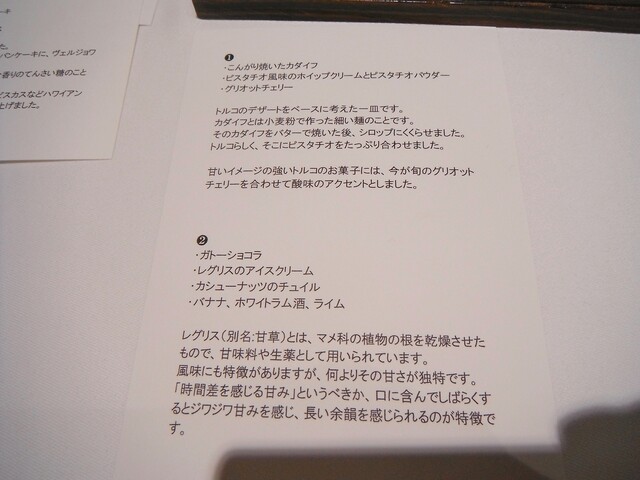 ーキ
た。
パンケーキに、ヴェルジョワ
香りのてんさい糖のこと
ビスカスなどハワイアン
上げました。
❶
・こんがり焼いたカダイフ
・ピスタチオ風味のホイップクリームとピスタチオパウダー
・グリオットチェリー
トルコのデザートをベースに考えた一皿です。
カダイフとは小麦粉で作った細い麺のことです。
そのカダイフをバターで焼いた後、シロップにくぐらせました。
トルコらしく、そこにピスタチオをたっぷり合わせました。
甘いイメージの強いトルコのお菓子には、今が旬のグリオット
チェリーを合わせて酸味のアクセントとしました。
❷
・ガトーショコラ
・レグリスのアイスクリーム
・カシューナッツのチュイル
・バナナ、ホワイトラム酒、ライム
レグリス（別名:甘草）とは、マメ科の植物の根を乾燥させた
もので、甘味料や生薬として用いられています。
風味にも特徴がありますが、何よりその甘さが独特です。
「時間差を感じる甘み」というべきか、口に含んでしばらくす
るとジワジワ甘みを感じ、長い余韻を感じられるのが特徴で
す。